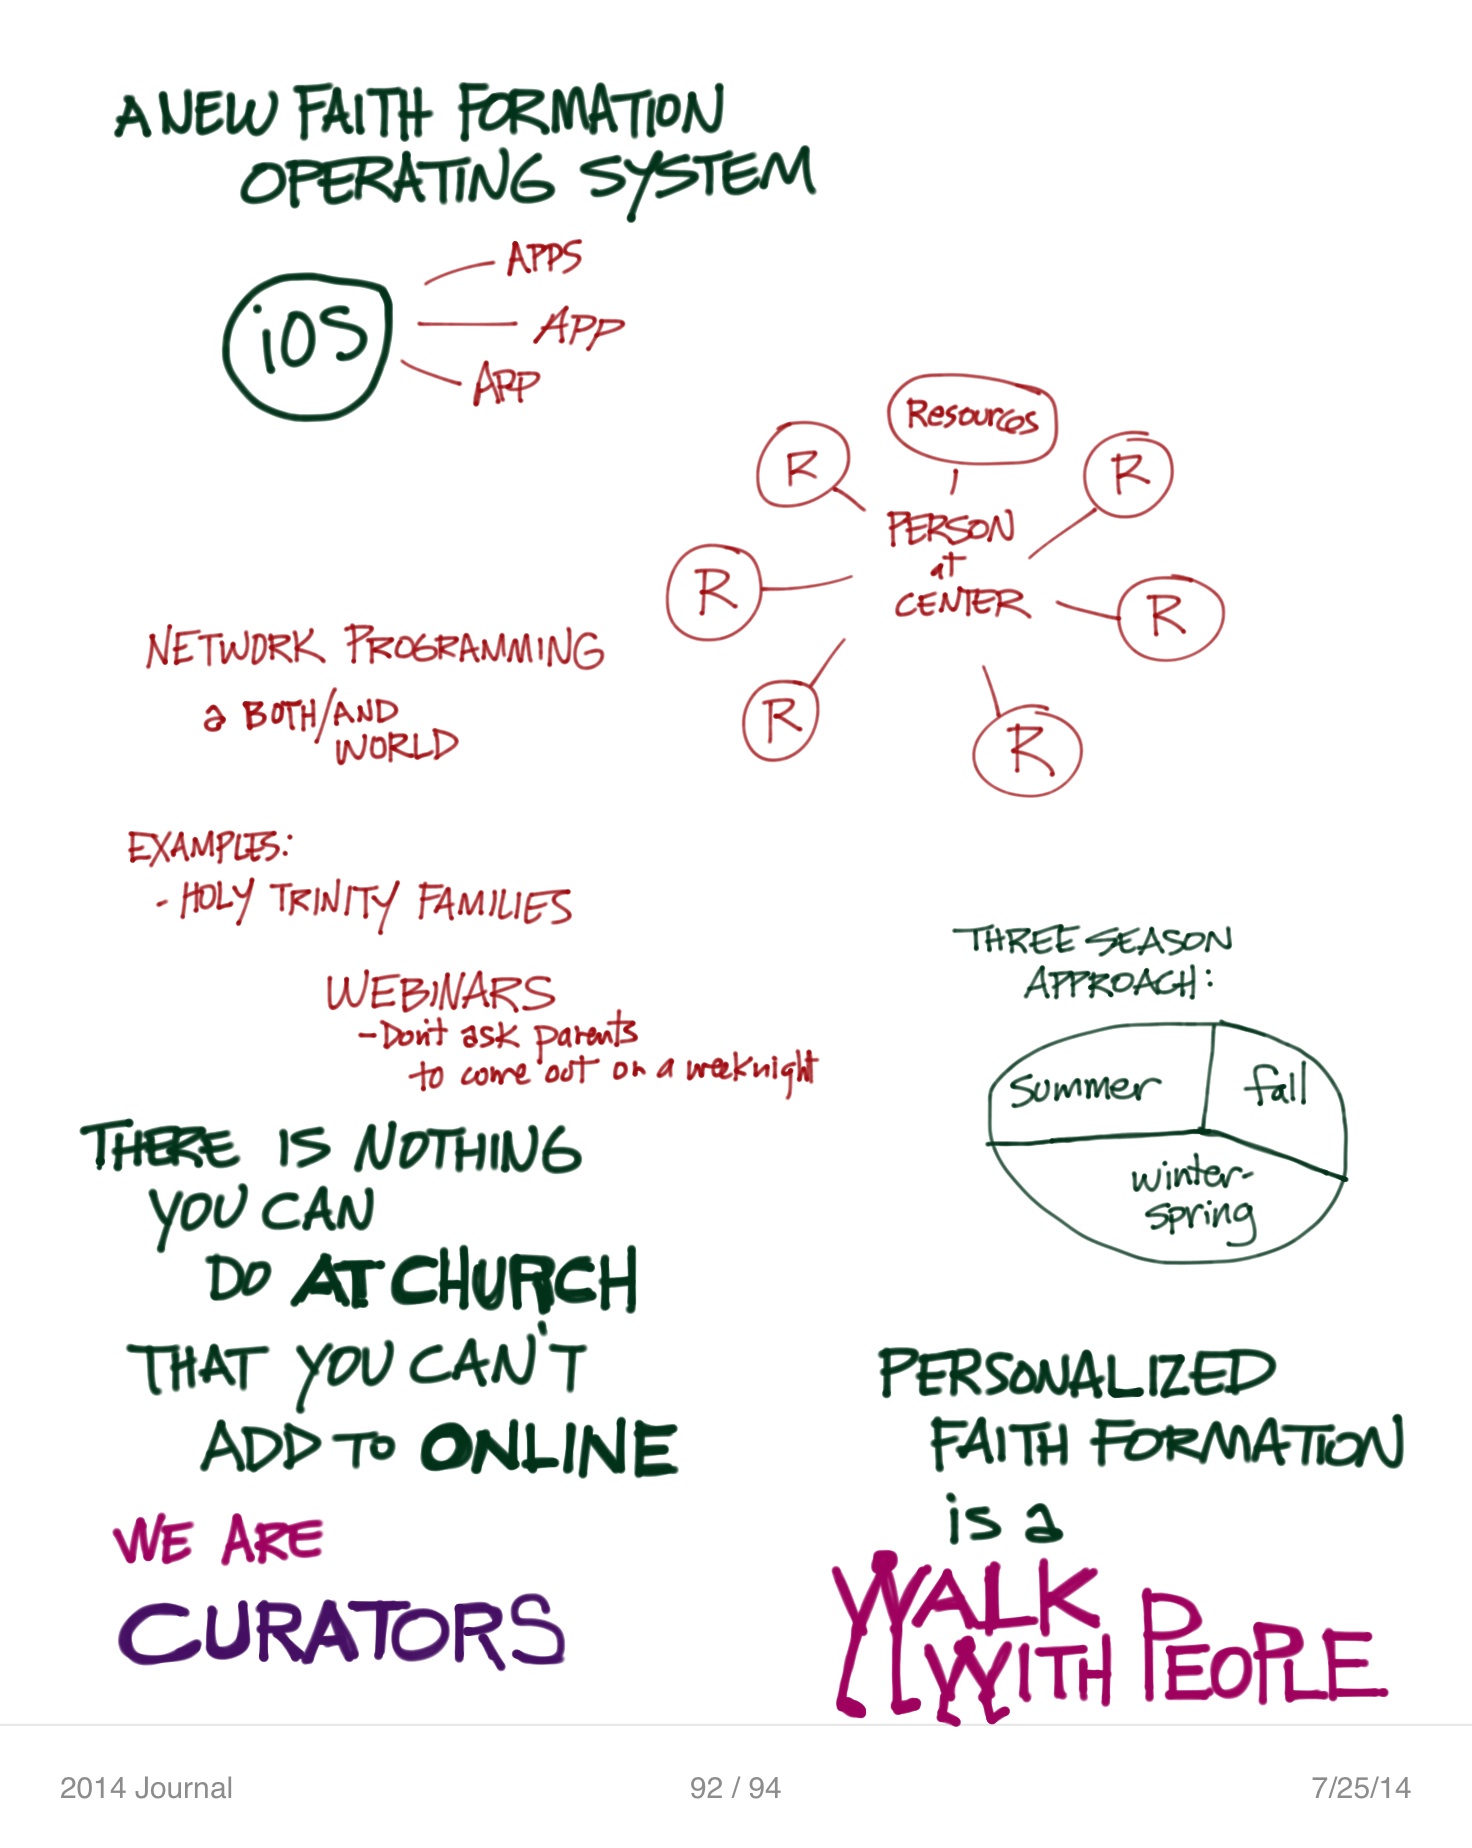 A NEW FAITH FORMATION
OPERATING SYSTEM
iOS
APPS
APP
APP
Resources
R
R
PERSON
at
CENTER
R
R
R
R
NETWORK PROGRAMMING
a BOTH/AND
WORLD
EXAMPLES:
- HOLY TRINITY FAMILIES
WEBINARS
- Don't ask parents
to come out on a weeknight
THREE SEASON
APPROACH:
summer
fall
winter-
spring
THERE IS NOTHING
YOU CAN
DO AT CHURCH
THAT YOU CAN'T
ADD TO ONLINE
WE ARE
CURATORS
PERSONALIZED
FAITH FORMATION
is a
WALK
WITH PEOPLE
2014 Journal
92 / 94
7/25/14